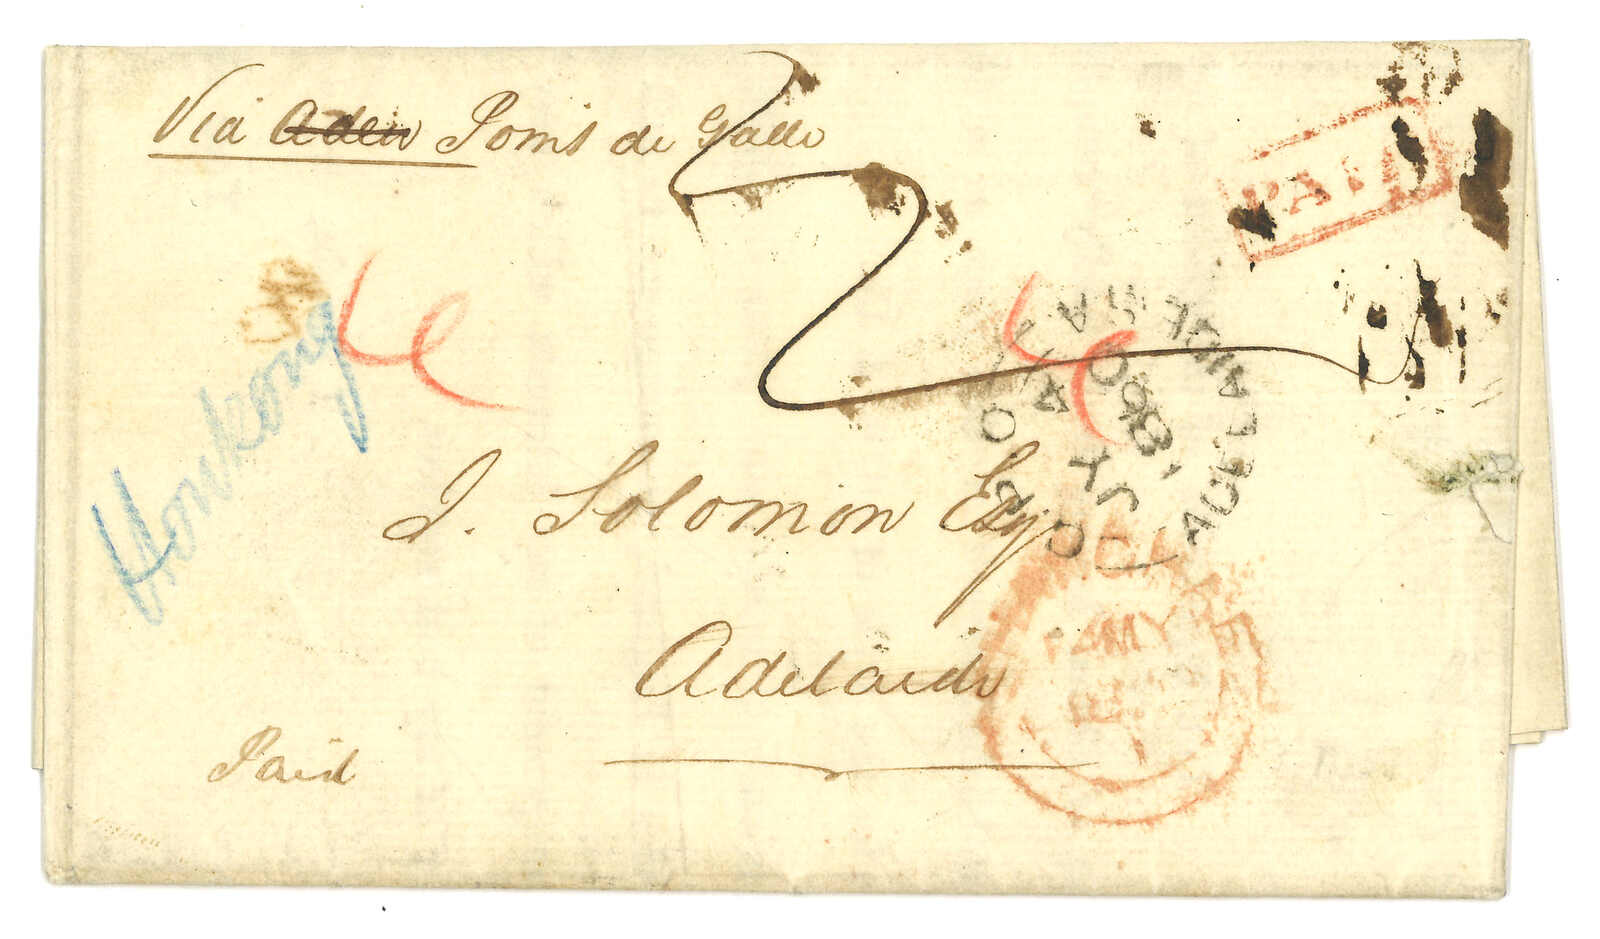 Via Aden Poins de Galle
PAID
Honkong
J. Solomon Esq
Adelaide
Paid
G.P.O.
ADELAIDE S.A
JY
1860
MY